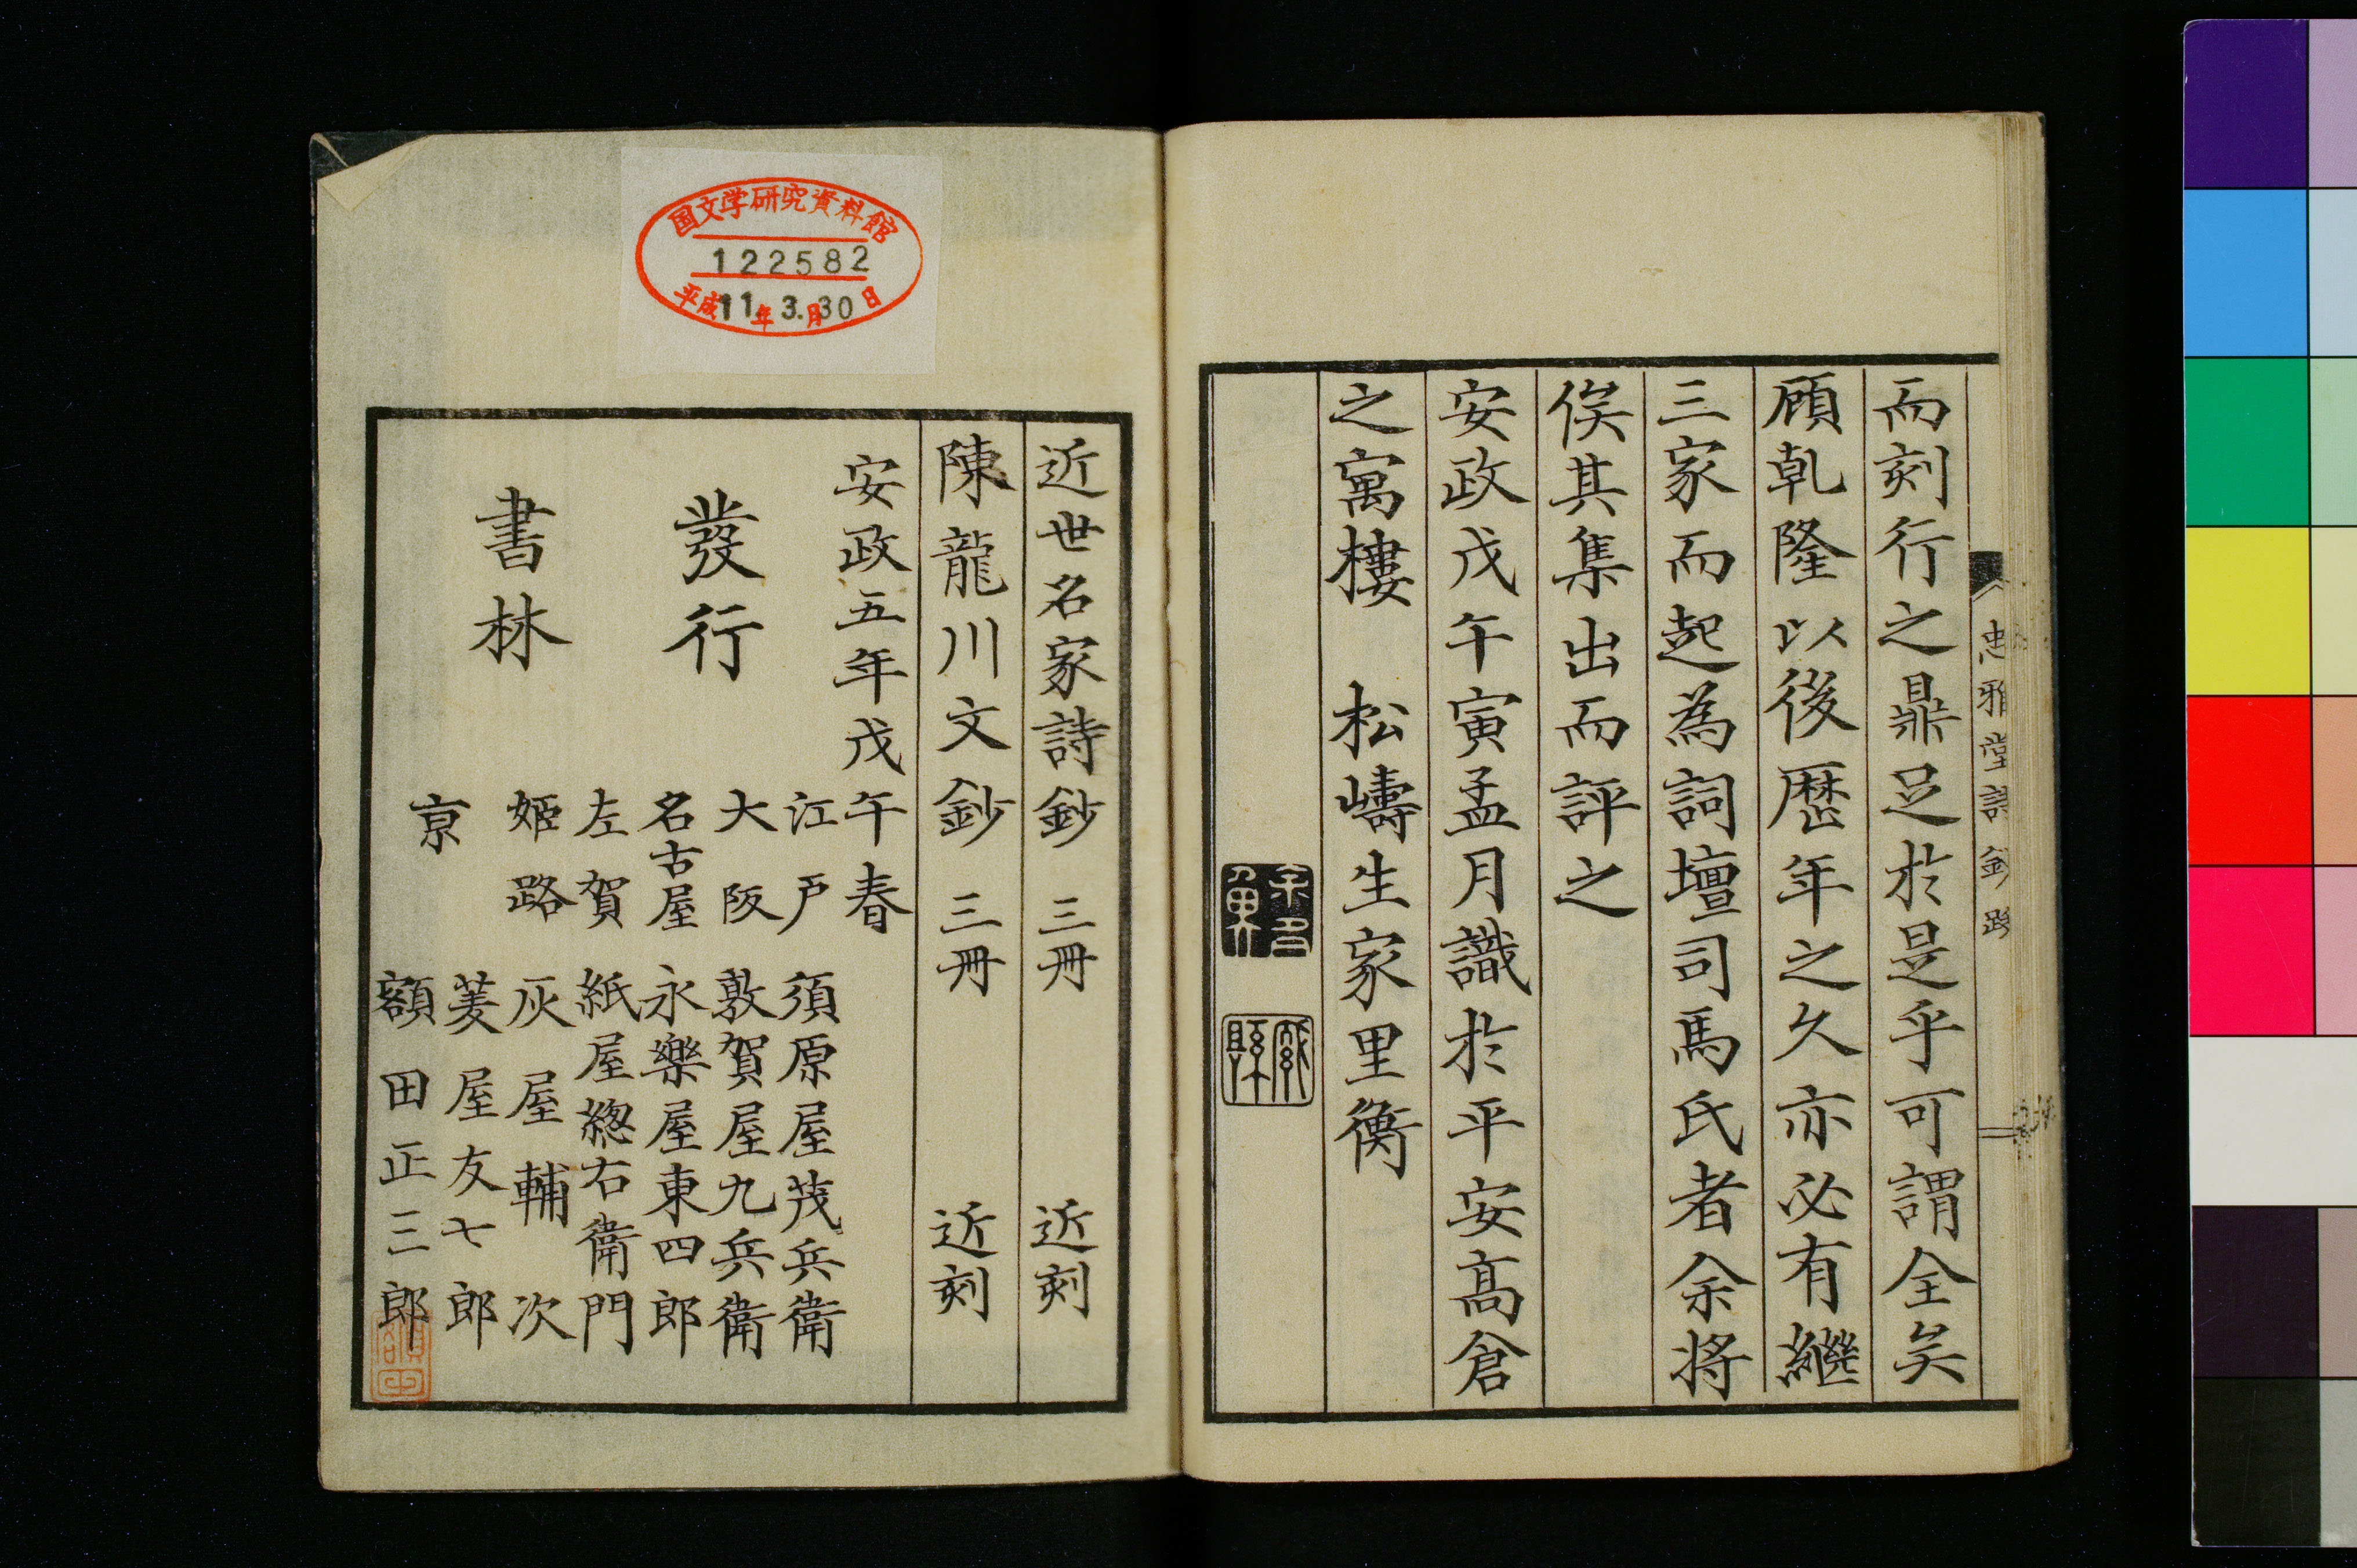 忠雅堂詩鈔跋
而刻行之鼎足於是乎可謂全矣
顧乾隆以後歷年之久亦必有繼
三家而起為詞壇司馬氏者余將
俟其集出而評之
安政戊午寅孟月識於平安高倉
之寓樓　松嶹生家里衡
国文学研究資料館
122582
平成11年3.月30日
近世名家詩鈔　三冊　近刻
陳龍川文鈔　三冊　近刻
安政五年戊午春
發行
書林
江戸　須原屋茂兵衛
大阪　敦賀屋九兵衛
名古屋　永樂屋東四郎
左賀　紙屋總右衛門
姫路　灰屋輔次
京　菱屋友七郎
額田正三郎